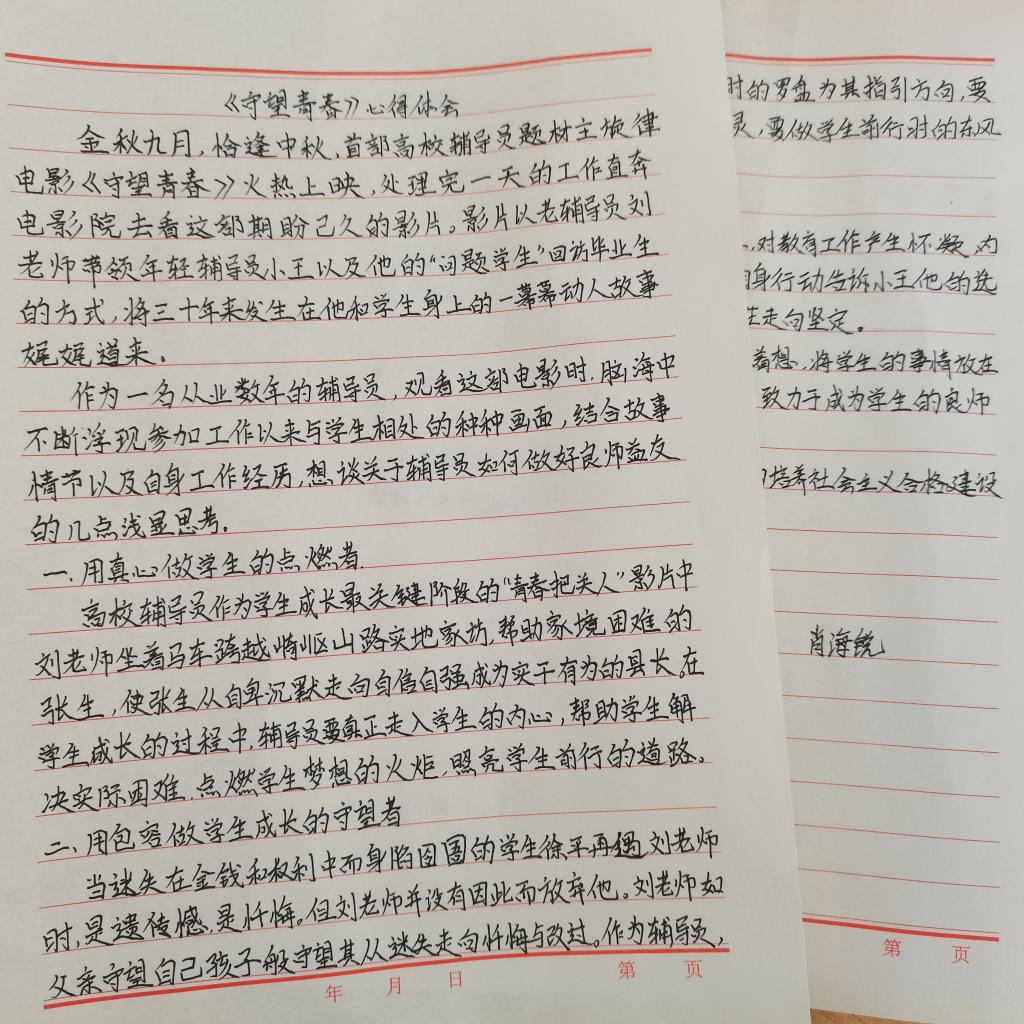 《守望青春》心得体会
金秋九月，恰逢中秋，首部高校辅导员题材主旋律
电影《守望青春》火热上映，处理完一天的工作直奔
电影院去看这部期盼已久的影片。影片以老辅导员刘
老师带领年轻辅导员小王以及他的“问题学生”回访毕业生
的方式，将三十年来发生在他和学生身上的一幕幕动人故事
娓娓道来。
作为一名从业数年的辅导员，观看这部电影时，脑海中
不断浮现参加工作以来与学生相处的种种画面，结合故事
情节以及自身工作经历，想谈关于辅导员如何做好良师益友
的几点浅显思考。
一、用真心做学生的点燃者
高校辅导员作为学生成长最关键阶段的“青春把关人”影片中
刘老师坐着马车跨越崎岖山路实地家访，帮助家境困难的
张生，使张生从自卑沉默走向自信自强成为实干有为的县长。在
学生成长的过程中，辅导员要真正走入学生的内心，帮助学生解
决实际困难，点燃学生梦想的火炬，照亮学生前行的道路。
二、用包容做学生成长的守望者
当迷失在金钱和权利中而身陷囹圄的学生徐平再遇刘老师
时，是遗憾，是忏悔。但刘老师并没有因此而放弃他。刘老师如
父亲守望自己孩子般守望其从迷失走向忏悔与改过。作为辅导员，
年 月 日 第 页
时的罗盘为其指引方向，要
灵，要做学生前行时的东风
对教育工作产生怀疑，为
身行动告诉小王他的选
走向坚定。
着想，将学生的事情放在
致力于成为学生的良师
培养社会主义合格建设
肖海锐
第 页